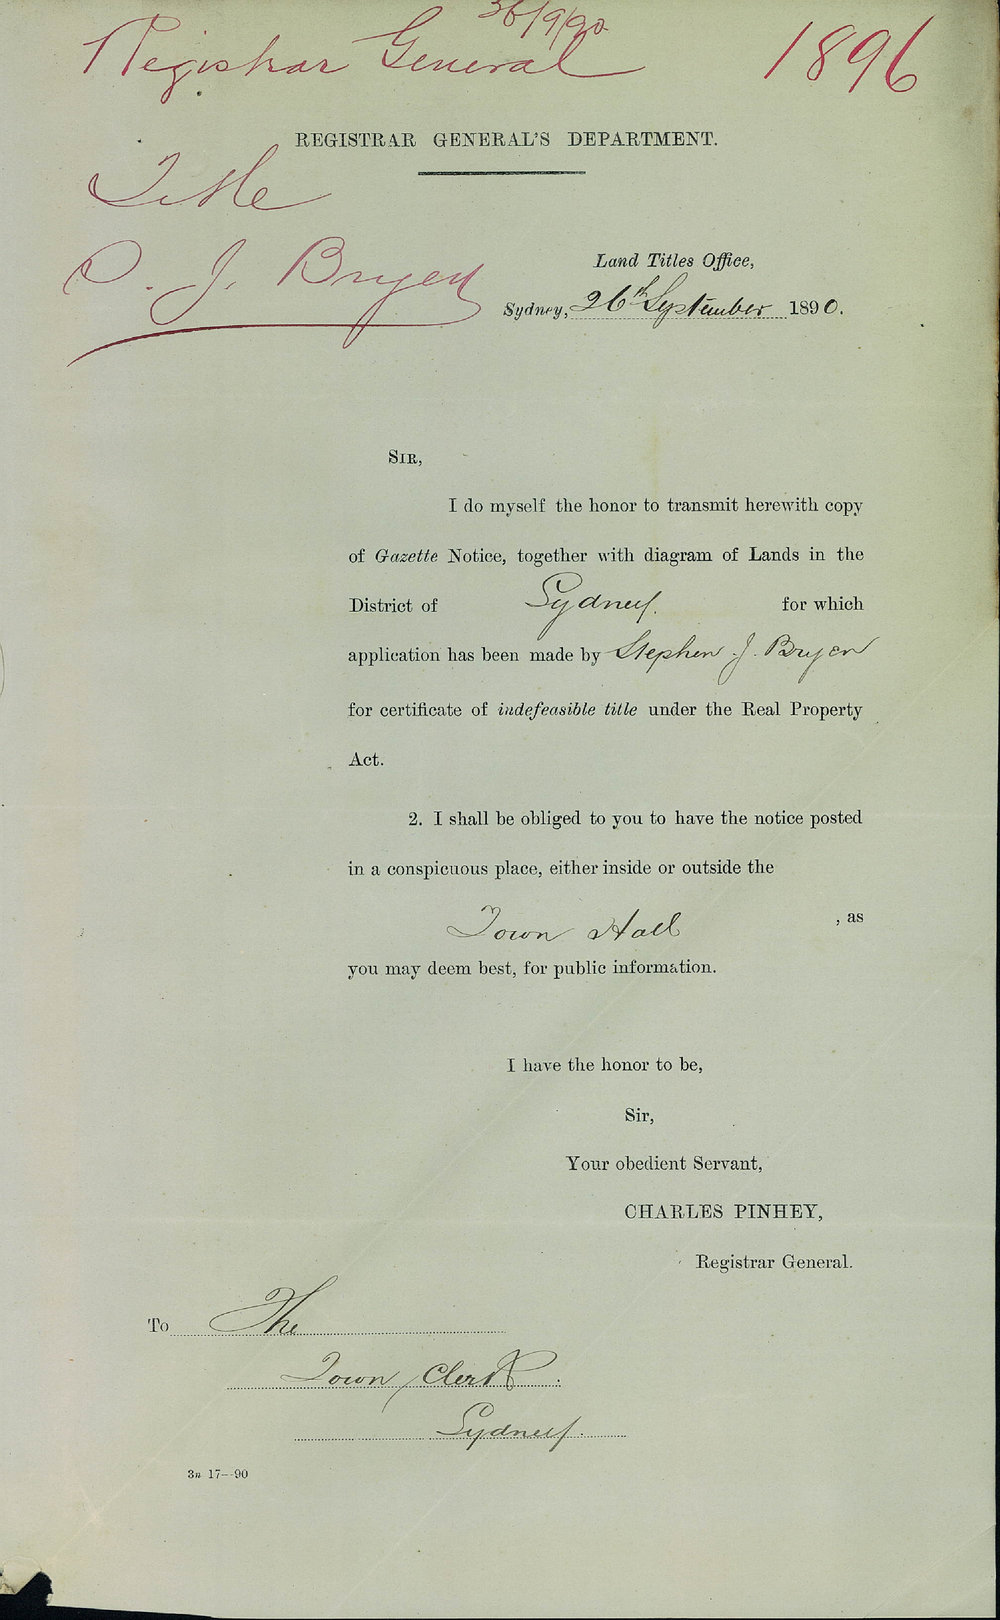 26/9/90
Registrar General
1896
REGISTRAR GENERAL'S DEPARTMENT.
Title
S. J. Bryen
Land Titles Office,
Sydney, 26th September 1890.
SIR,
I do myself the honor to transmit herewith copy
of Gazette Notice, together with diagram of Lands in the
District of Sydney. for which
application has been made by Stephen J. Bryen
for certificate of indefeasible title under the Real Property
Act.
2. I shall be obliged to you to have the notice posted
in a conspicuous place, either inside or outside the
Town Hall , as
you may deem best, for public information.
I have the honor to be,
Sir,
Your obedient Servant,
CHARLES PINHEY,
Registrar General.
To The
Town Clerk
Sydney.
3n 17—90